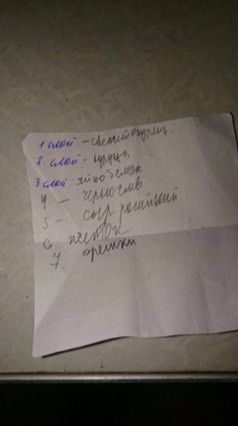 1 слой - свежий огурец.
2. слой - курица
3 слой яйцо белок
4. - чернослив
5 - сыр российский
6 желток
7. орешки